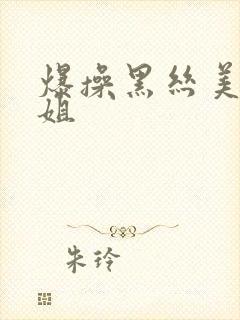 爆操黑丝美
姐
朱玲